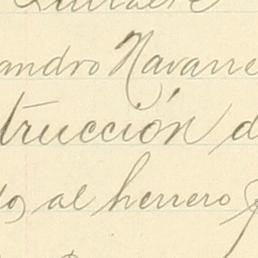 andro Navarre
trucción d
do, al herrero